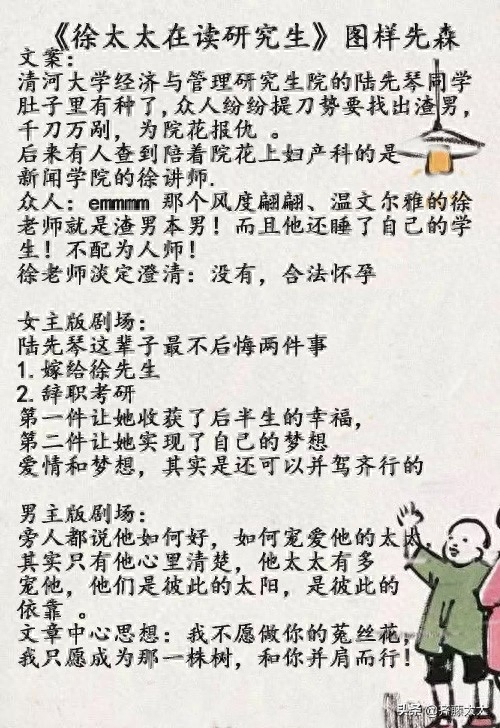 《徐太太在读研究生》图样先森
文案：
清河大学经济与管理研究生院的陆先琴同学
肚子里有种了,众人纷纷提刀势要找出渣男,
千刀万剐，为院花报仇 。
后来有人查到陪着院花上妇产科的是
新闻学院的徐讲师.
众人：emmmm 那个风度翩翩、温文尔雅的徐
老师就是渣男本男！而且他还睡了自己的学
生！不配为人师！
徐老师淡定澄清：没有，合法怀孕
女主版剧场：
陆先琴这辈子最不后悔两件事
1.嫁给徐先生
2.辞职考研
第一件让她收获了后半生的幸福，
第二件让她实现了自己的梦想
爱情和梦想，其实是还可以并驾齐行的
男主版剧场：
旁人都说他如何好，如何宠爱他的太太.
其实只有他心里清楚，他太太有多
宠他，他们是彼此的太阳，是彼此的
依靠 。
文章中心思想：我不愿做你的菟丝花，
我只愿成为那一株树，和你并肩而行！
头条 @择藤太太